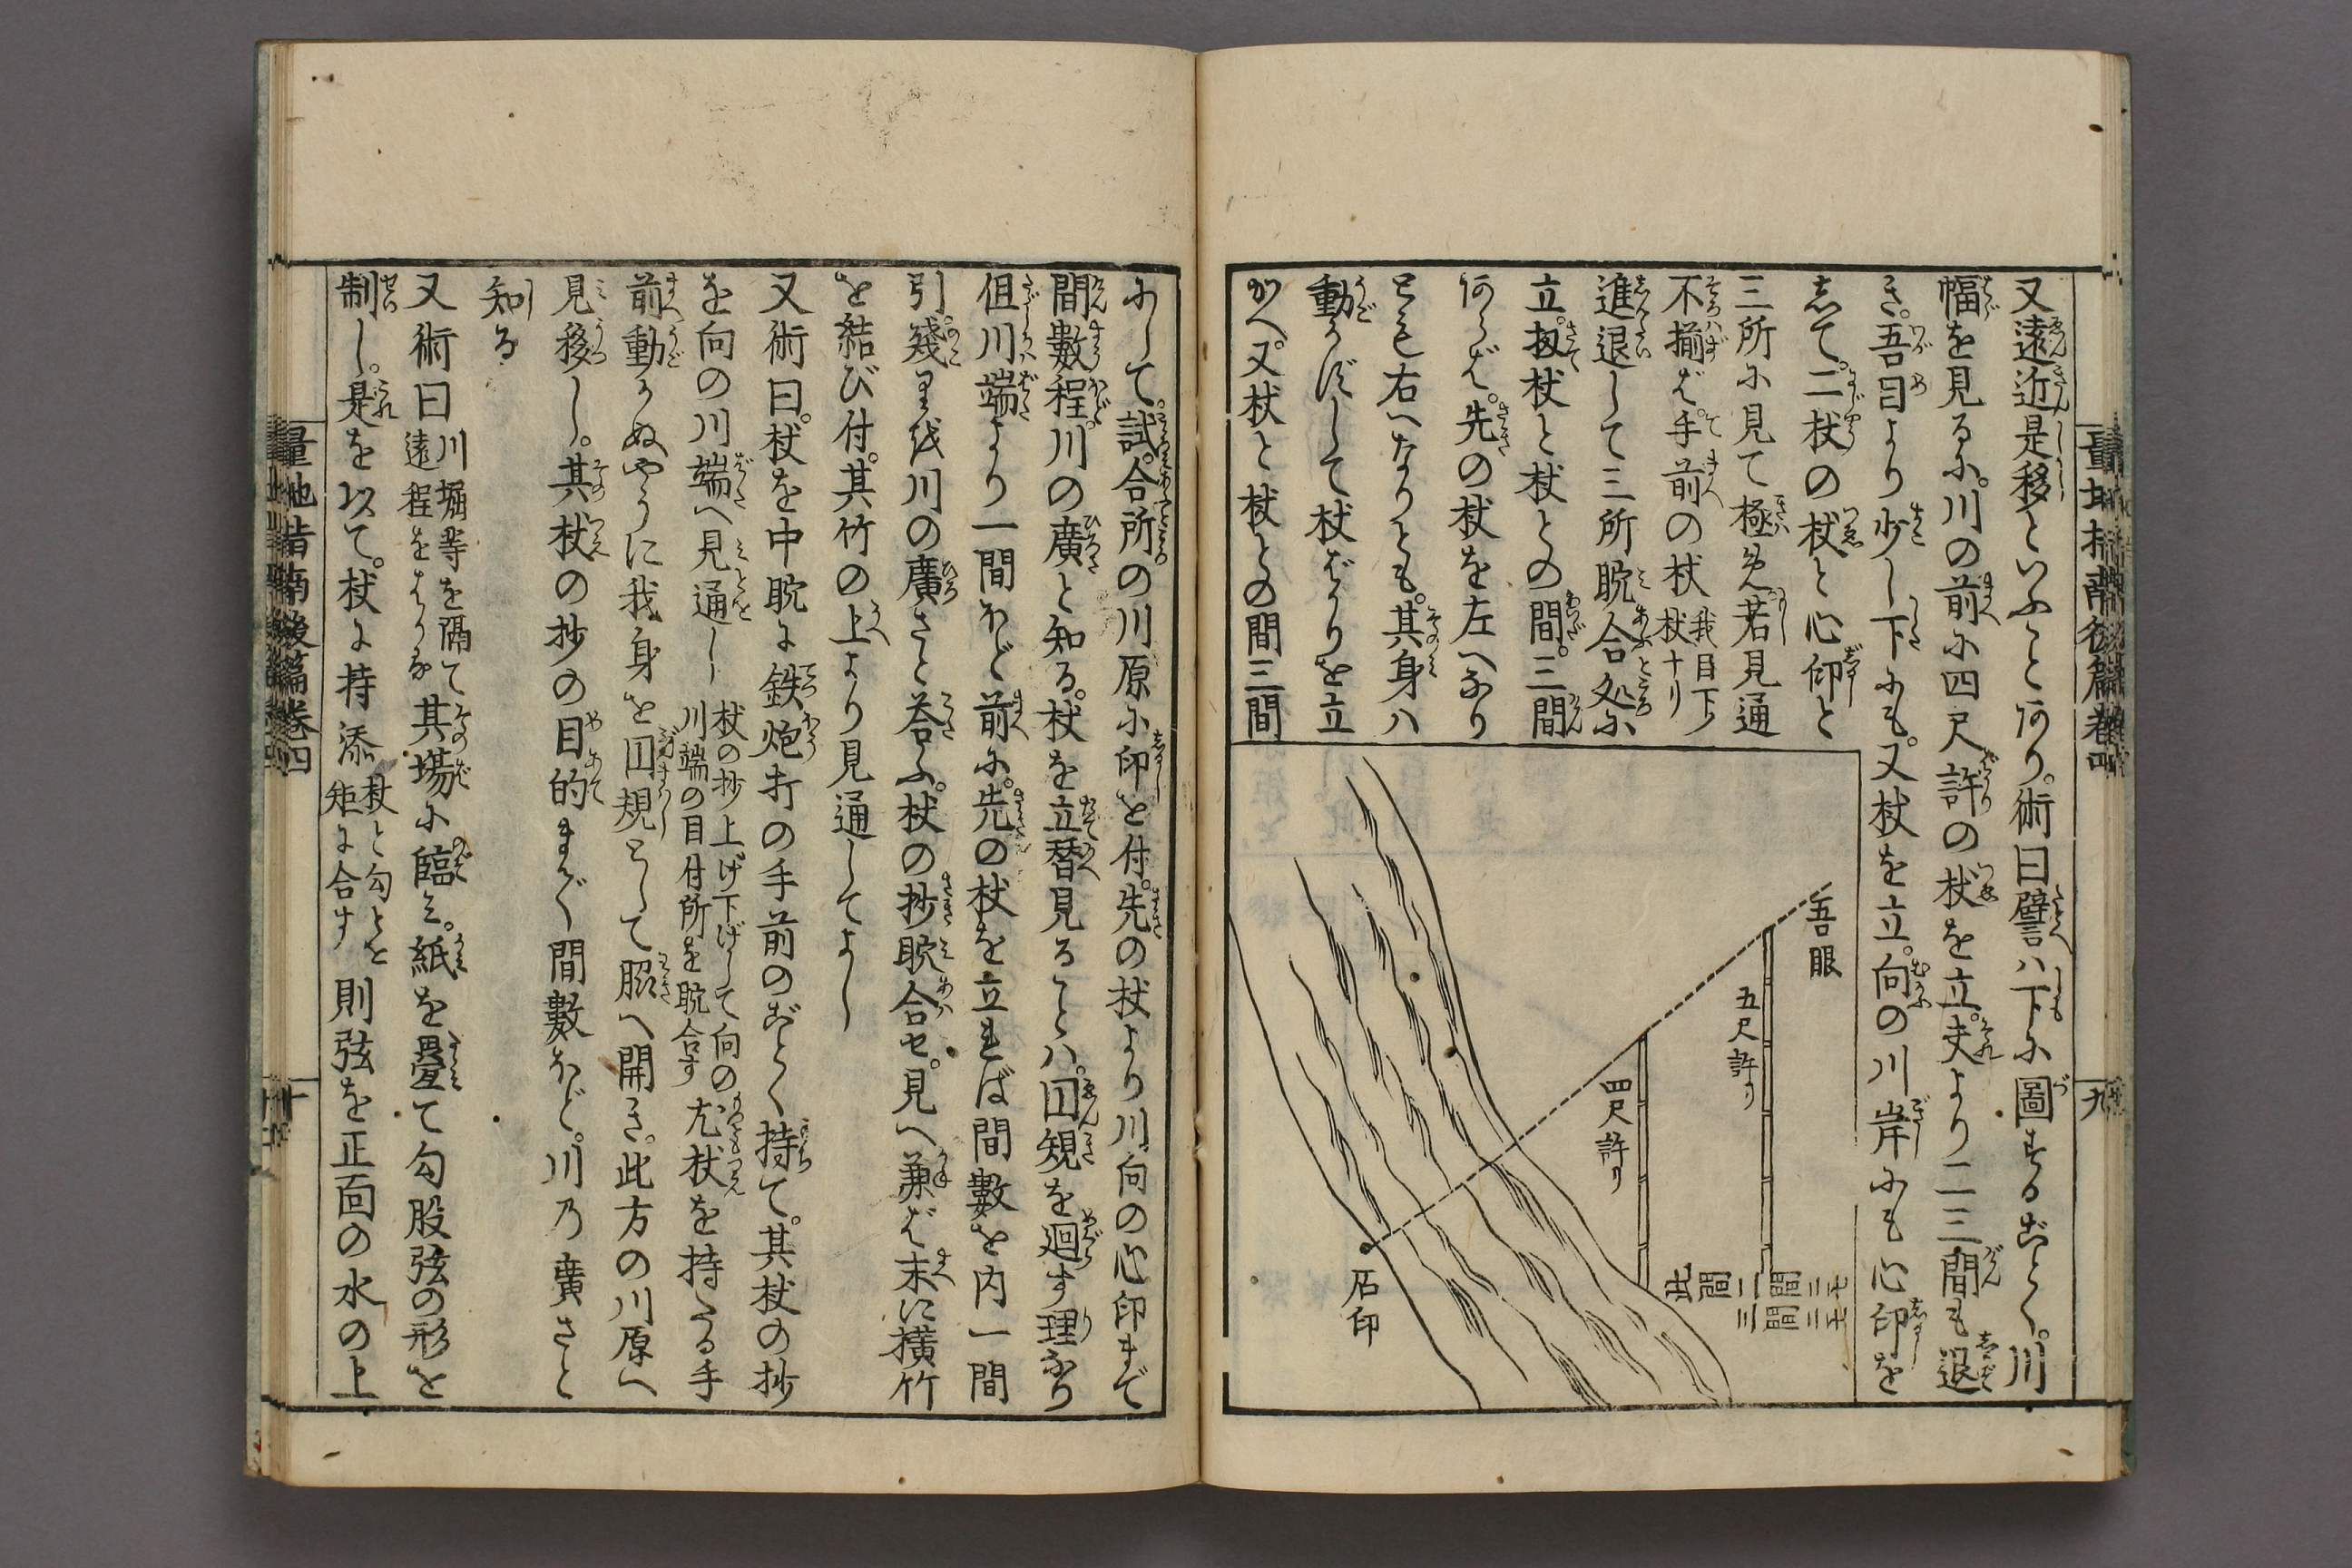 又遠近是移といふこと何り。術曰譬ハ下に圖するごとく。川
幅を見るに。川の前に四尺許の杖を立。夫より二三間も退
き。吾目より少し下にも。又杖を立。向の川岸にも心印を
志て。二杖の杖と心印と
三所に見て極め。若見通
不揃ば。手前の杖
我目下ノ
杖ナリ
進退して三所睨合処に
立。扨杖と杖との間。三間
何らば。先の杖を左へなり
とも右へなりとも。其身ハ
動かずして杖ばかりを立
かへ。又杖と杖との間三間
吾眼
五尺許リ
四尺許リ
石印
量地指南後篇卷四
九
にして。試。合所の川原に印を付。先の杖より川向の心印まで
間數程。川の廣と知る。杖を立替見ることハ。囘規を廻す理なり
但川端より一間ほど前に。先の杖を立れば間數を内一間
引。殘りを川の廣さと答ふ。杖の抄睨合せ。見へ兼ば末に横竹
を結び付。其竹の上より見通してよし
又術曰。杖を中睨に鉄炮打の手前のごとく持て。其杖の抄
を向の川端へ見通し
杖の抄上げ下げして向の
川端の目付所を睨合す
尤杖を持たる手
前動かぬやうに我身を囘規として脇へ開き。此方の川原へ
見移し。其杖の抄の目的まで間數ほど。川乃廣さと
知る
又術曰
川堀等を隔て
遠程をはかる
其場に臨み。紙を疊て勾股弦の形を
制し。是を以て。杖に持添
杖と勾とを
矩に合す
則弦を正面の水の上
量地指南後篇卷四
十